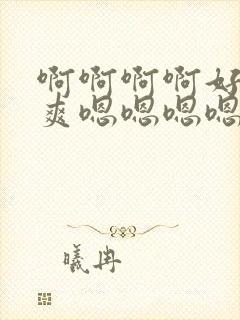 啊啊啊啊好
爽嗯嗯嗯嗯
曦冉